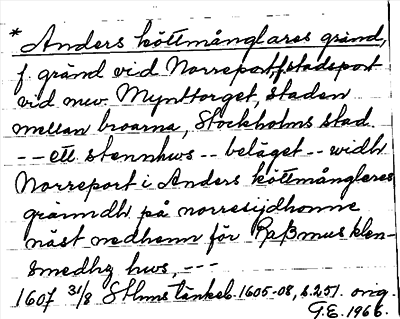 * Anders köttmånglares gränd,
f. gränd vid Norreport, stadsport
vid nuv. Mynttorget, staden
mellan broarna, Stockholms stad.
-- ett stennhws -- beläget -- widh
Norreport i Anders köttmånglares
gränndh på norresijdhonne
näst nedhenn för Raßmus klen-
smedhz hws, ---
1607 31/8 Sthms tänkeb. 1605-08, s. 251. orig.
G.E. 1966.